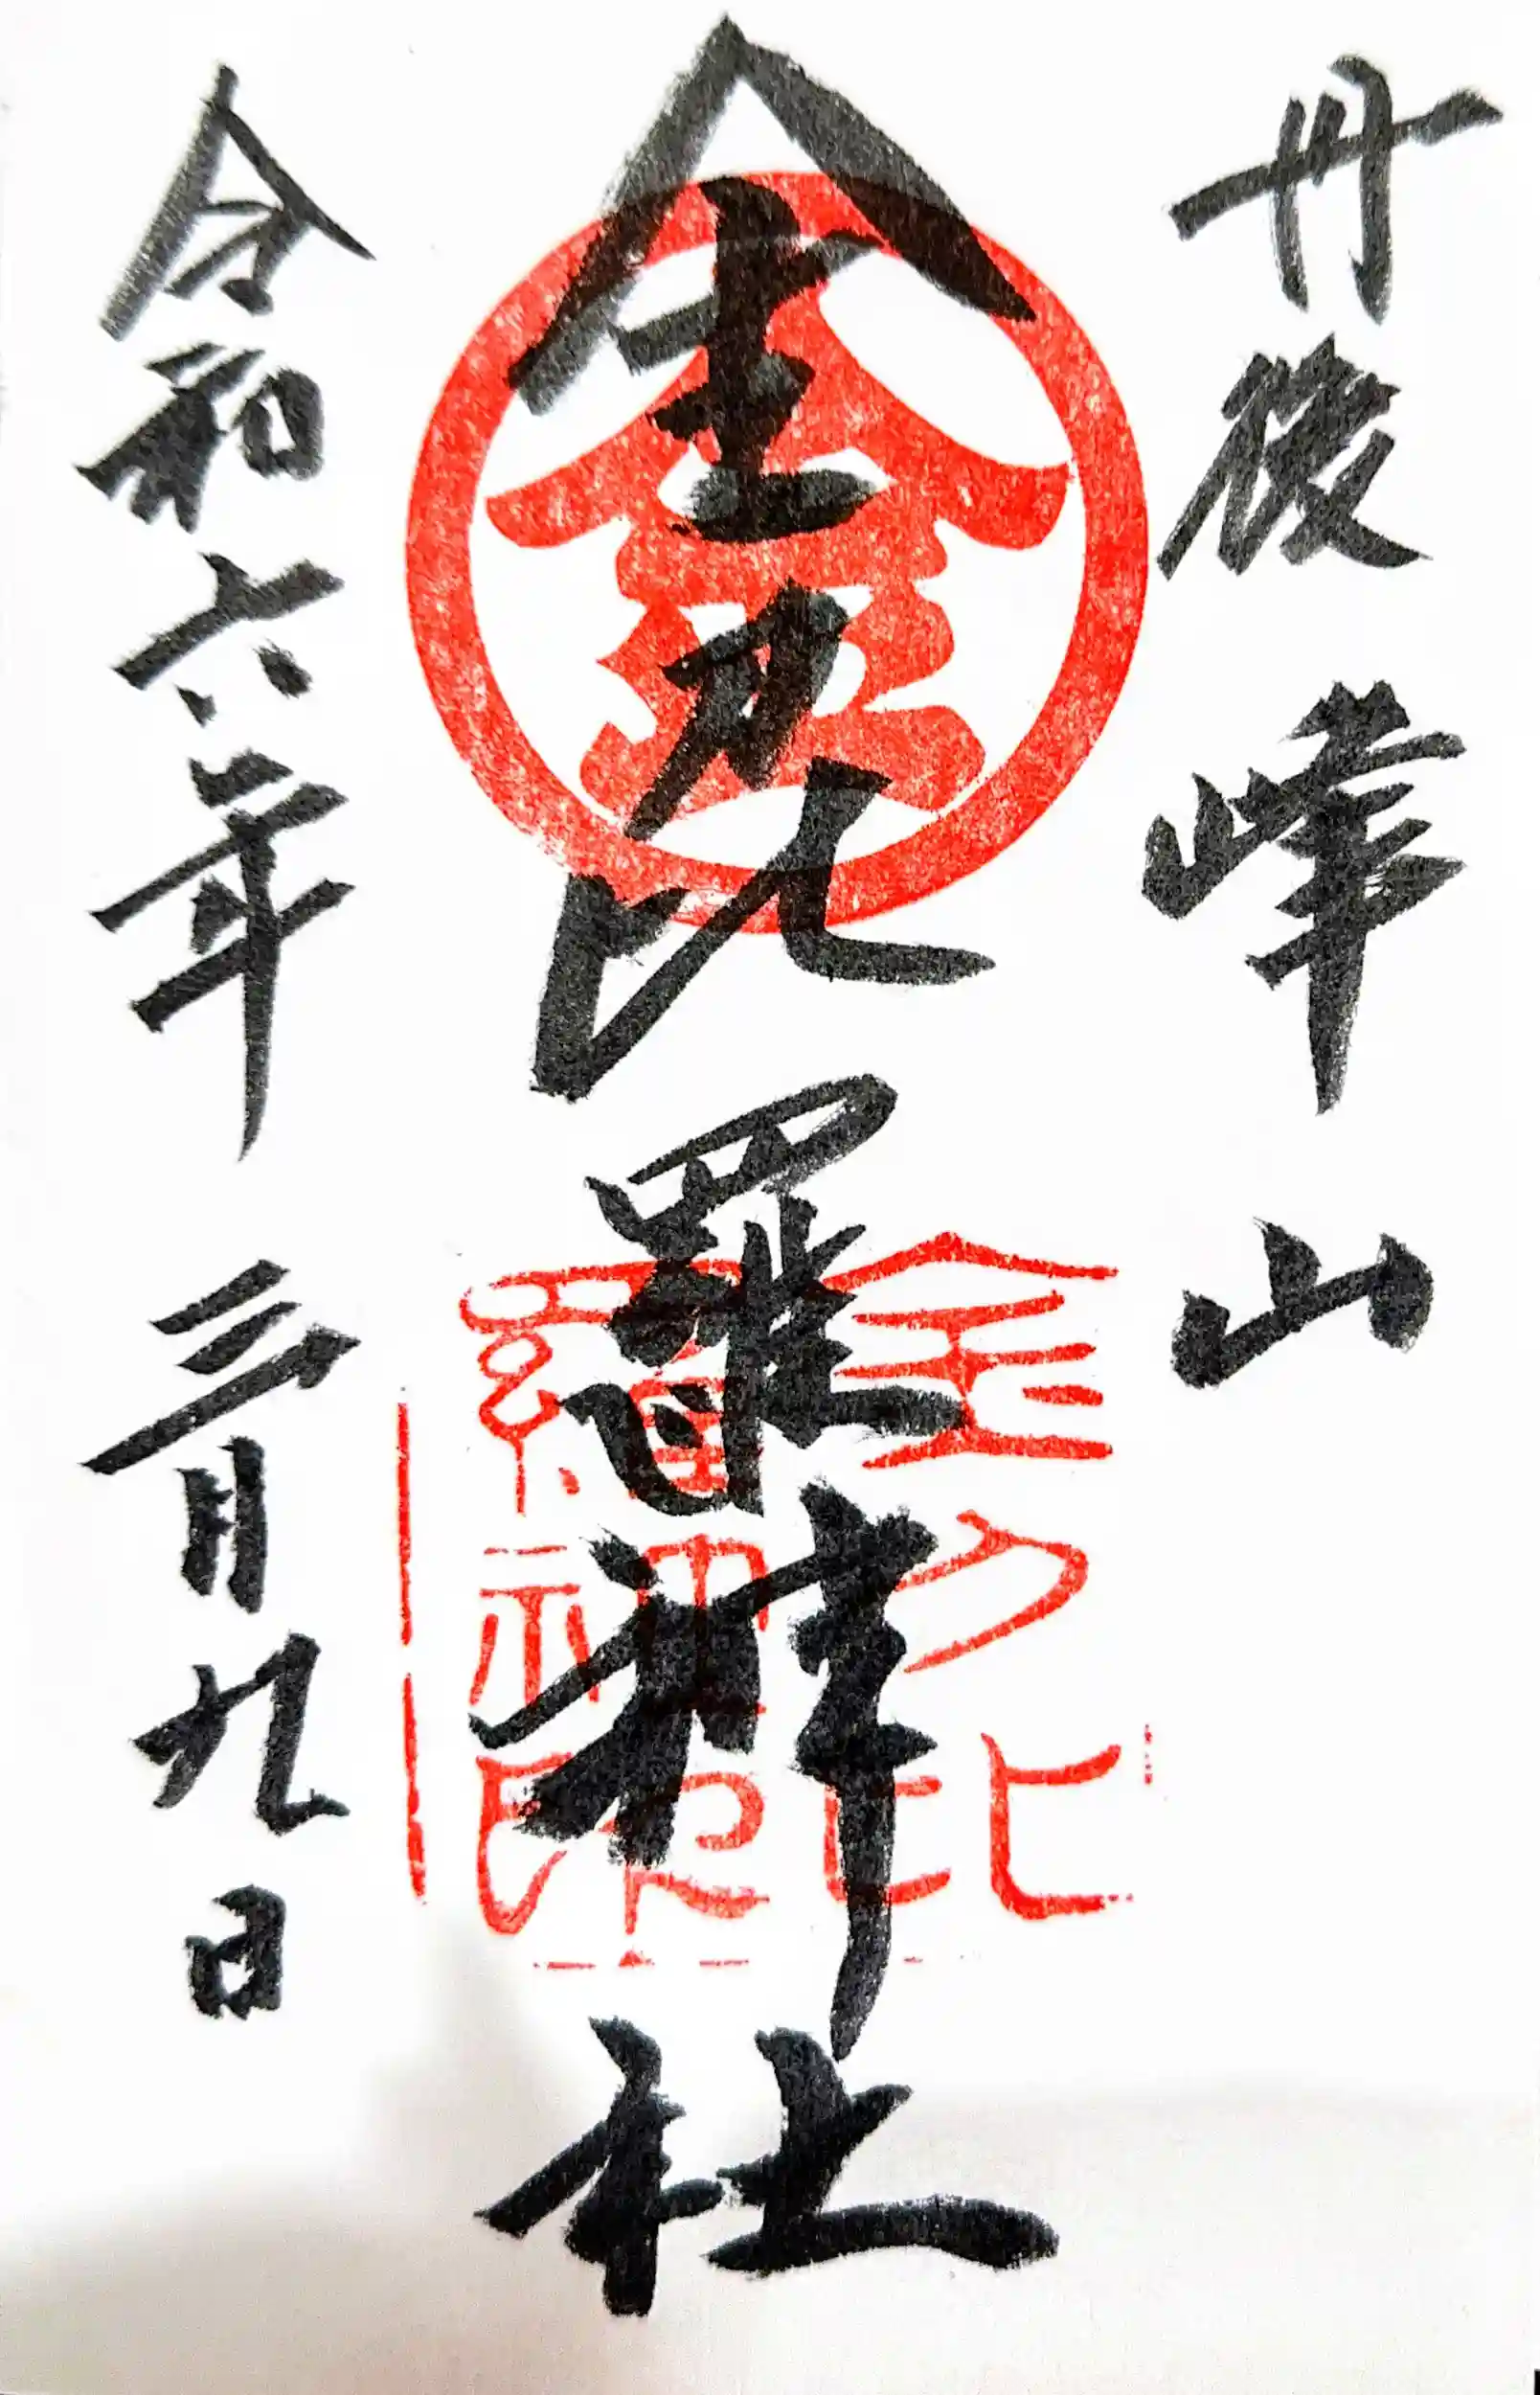 丹後 峰山
金
金刀比羅神社
金刀比
羅神印
令和六年 三月九日